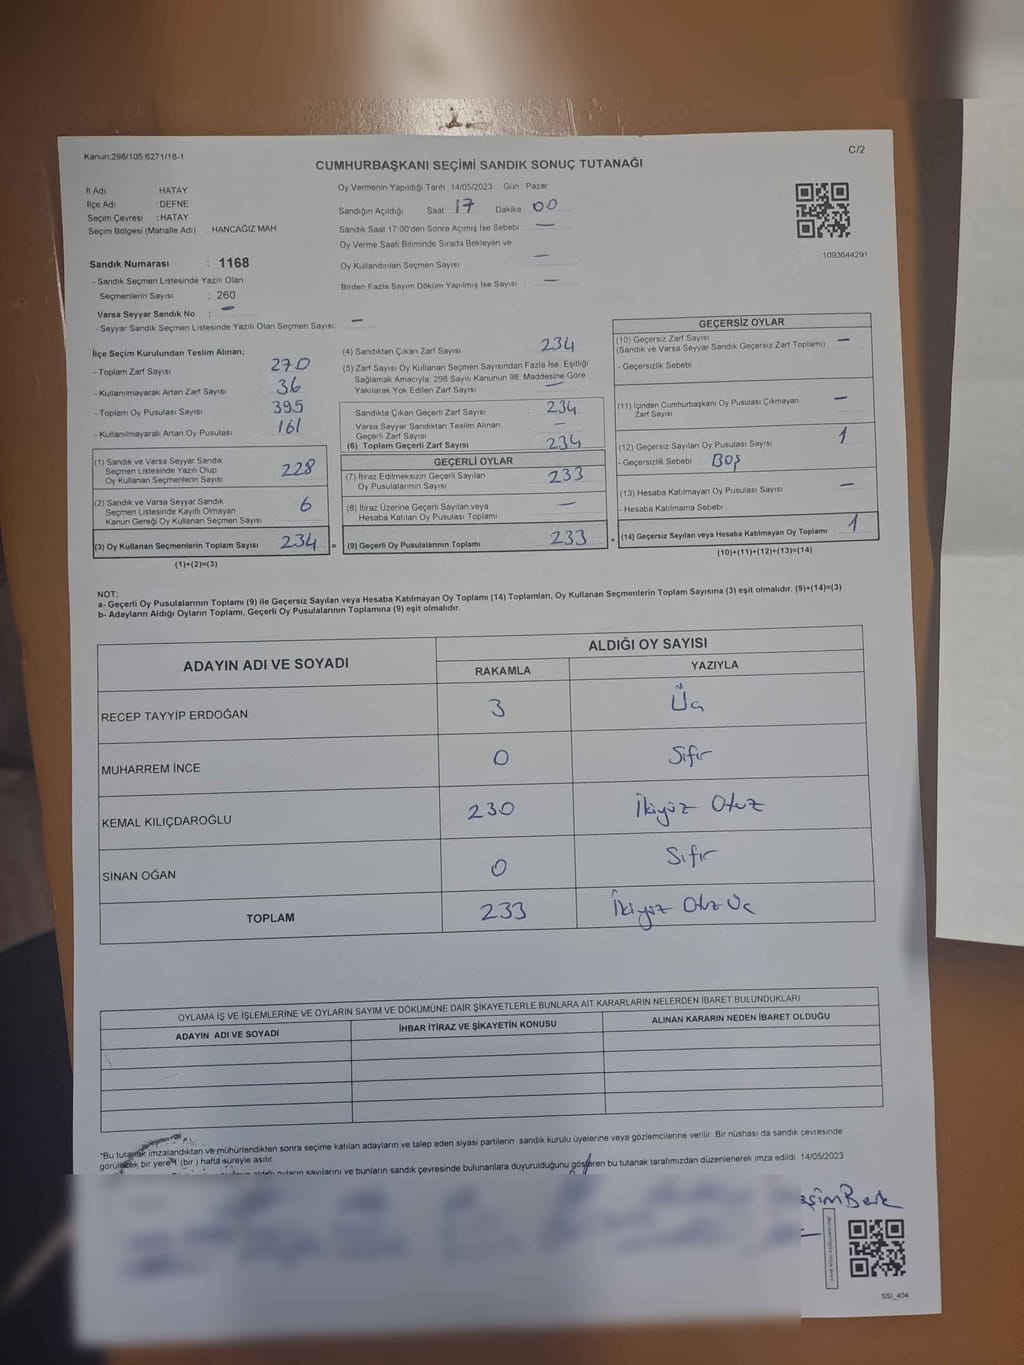 Kanun 298/105,6271/18-1
C/2
CUMHURBAŞKANI SEÇİMİ SANDIK SONUÇ TUTANAĞI
İl Adı HATAY
İlçe Adı : DEFNE
Seçim Çevresi : HATAY
Seçim Bölgesi (Mahalle Adı) : HANCAĞIZ MAH.
Sandık Numarası : 1168
- Sandık Seçmen Listesinde Yazılı Olan
Seçmenlerin Sayısı : 260
Varsa Seyyar Sandık No : –
- Seyyar Sandık Seçmen Listesinde Yazılı Olan Seçmen Sayısı: –
Oy Vermenin Yapıldığı Tarih 14/05/2023 Gün Pazar
Sandığın Açıldığı Saat 17 Dakika 00
Sandık Saat 17:00'den Sonra Açımış İse Sebebi –
Oy Verme Saati Bitiminde Sırada Bekleyen ve
Oy Kullandırılan Seçmen Sayısı –
Birden Fazla Sayım Döküm Yapılmış İse Sayısı : –
1093644291
İlçe Seçim Kurulundan Teslim Alınan;
- Toplam Zarf Sayısı : 270
- Kullanılmayarak Artan Zarf Sayısı : 36
- Toplam Oy Pusulası Sayısı : 395
- Kullanılmayarak Artan Oy Pusulası : 161
(1) Sandık ve Varsa Seyyar Sandık
Seçmen Listesinde Yazılı Olup
Oy Kullanan Seçmenlerin Sayısı : 228
(2) Sandık ve Varsa Seyyar Sandık
Seçmen Listesinde Kayıtlı Olmayan
Kanun Gereği Oy Kullanan Seçmen Sayısı : 6
(3) Oy Kullanan Seçmenlerin Toplam Sayısı : 234 =
(1)+(2)=(3)
(4) Sandıktan Çıkan Zarf Sayısı : 234
(5) Zarf Sayısı Oy Kullanan Seçmen Sayısından Fazla İse, Eşitliği
Sağlamak Amacıyla; 298 Sayılı Kanunun 98. Maddesine Göre
Yakılarak Yok Edilen Zarf Sayısı : –
Sandıkta Çıkan Geçerli Zarf Sayısı : 234
Varsa Seyyar Sandıktan Teslim Alınan
Geçerli Zarf Sayısı : –
(6) Toplam Geçerli Zarf Sayısı : 234
GEÇERLİ OYLAR
(7) İtiraz Edilmeksizin Geçerli Sayılan
Oy Pusulalarının Sayısı : 233
(8) İtiraz Üzerine Geçerli Sayılan veya
Hesaba Katılan Oy Pusulası Toplamı : –
(9) Geçerli Oy Pusulalarının Toplamı : 233 +
GEÇERSİZ OYLAR
(10) Geçersiz Zarf Sayısı : –
(Sandık ve Varsa Seyyar Sandık Geçersiz Zarf Toplamı)
- Geçersizlik Sebebi :
(11) İçinden Cumhurbaşkanı Oy Pusulası Çıkmayan
Zarf Sayısı : –
(12) Geçersiz Sayılan Oy Pusulası Sayısı : 1
- Geçersizlik Sebebi : Boş
(13) Hesaba Katılmayan Oy Pusulası Sayısı : –
- Hesaba Katılmama Sebebi :
(14) Geçersiz Sayılan veya Hesaba Katılmayan Oy Toplamı : 1
(10)+(11)+(12)+(13)=(14)
NOT:
a- Geçerli Oy Pusulalarının Toplamı (9) ile Geçersiz Sayılan veya Hesaba Katılmayan Oy Toplamı (14) Toplamları, Oy Kullanan Seçmenlerin Toplam Sayısına (3) eşit olmalıdır. (9)+(14)=(3)
b- Adayların Aldığı Oyların Toplamı, Geçerli Oy Pusulalarının Toplamına (9) eşit olmalıdır.
ADAYIN ADI VE SOYADI ALDIĞI OY SAYISI
RAKAMLA YAZIYLA
RECEP TAYYİP ERDOĞAN 3 Üç
MUHARREM İNCE 0 Sıfır
KEMAL KILIÇDAROĞLU 230 İkiyüz Otuz
SİNAN OĞAN 0 Sıfır
TOPLAM 233 İkiyüz Otuz Üç
OYLAMA İŞ VE İŞLEMLERİNE VE OYLARIN SAYIM VE DÖKÜMÜNE DAİR ŞİKAYETLERLE BUNLARA AİT KARARLARIN NELERDEN İBARET BULUNDUKLARI
ADAYIN ADI VE SOYADI İHBAR İTİRAZ VE ŞİKAYETİN KONUSU ALINAN KARARIN NEDEN İBARET OLDUĞU
*Bu tutanak imzalandıktan ve mühürlendikten sonra seçime katılan adayların ve talep eden siyasi partilerin sandık kurulu üyelerine veya gözlemcilerine verilir. Bir nüshası da sandık çevresinde
görülecek bir yere 1 (bir) hafta süreyle asılır.
aldığı oyların sayılarını ve bunların sandık çevresinde bulunanlara duyurulduğunu gösteren bu tutanak tarafımızdan düzenlenerek imza edildi. 14/05/2023
Berk
SSI_404